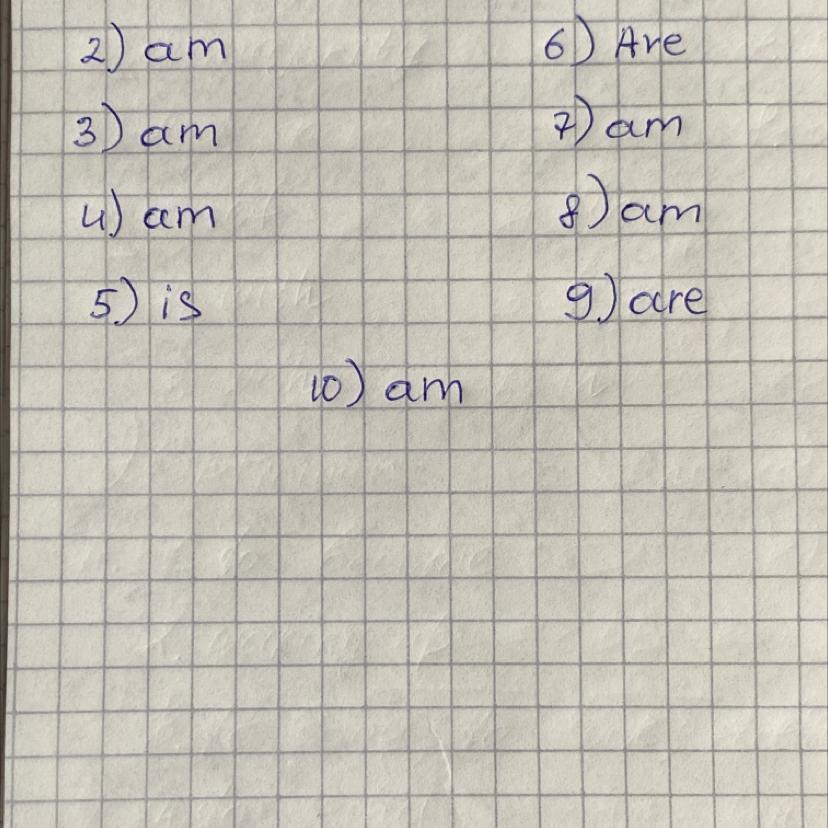 2) am
3) am
4) am
5) is
6) Are
7) am
8) am
9) are
10) am